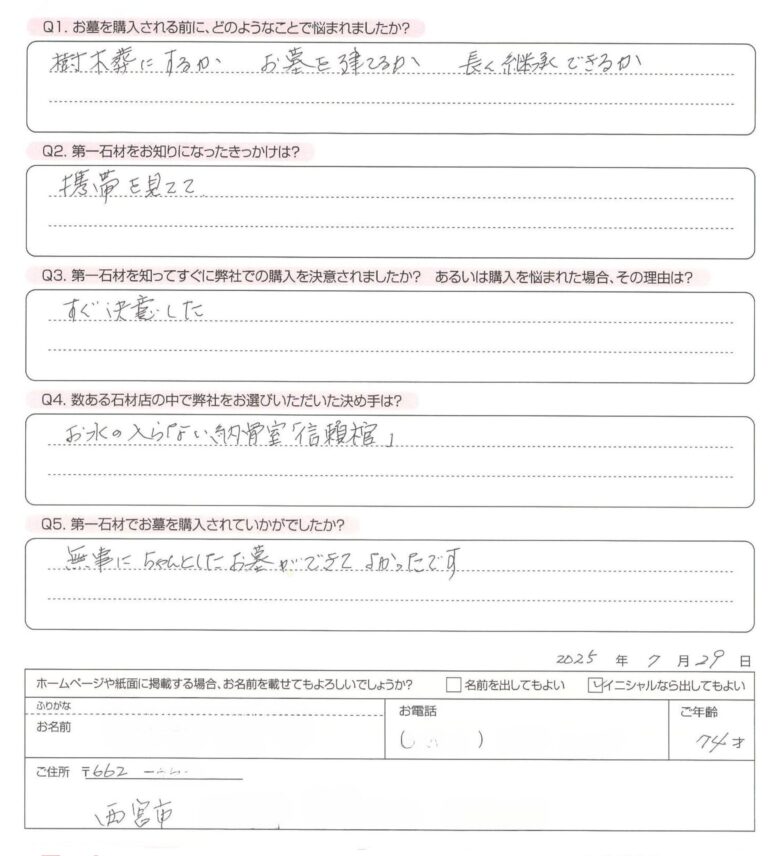 Q1. お墓を購入される前に、どのようなことで悩まれましたか?
樹木葬にするか　お墓を建てるか　長く継承できるか
Q2. 第一石材をお知りになったきっかけは?
携帯を見てて
Q3. 第一石材を知ってすぐに弊社での購入を決意されましたか?　あるいは購入を悩まれた場合、その理由は?
すぐ決意した
Q4. 数ある石材店の中で弊社をお選びいただいた決め手は?
お水の入らない納骨室「信頼棺」
Q5. 第一石材でお墓を購入されていかがでしたか?
無事にちゃんとしたお墓ができてよかったです
2025 年 7 月 29 日
ホームページや紙面に掲載する場合、お名前を載せてもよろしいでしょうか?　名前を出してもよい　イニシャルなら出してもよい
ふりがな
お名前
お電話
(　)
ご年齢
74才
ご住所 〒662
西宮市